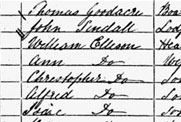 Thomas Goodacre Boa
John Tindall Lod
William Ellam Hea
Ann Do
Christopher Do So
Alfred Do So
Isaac Do So